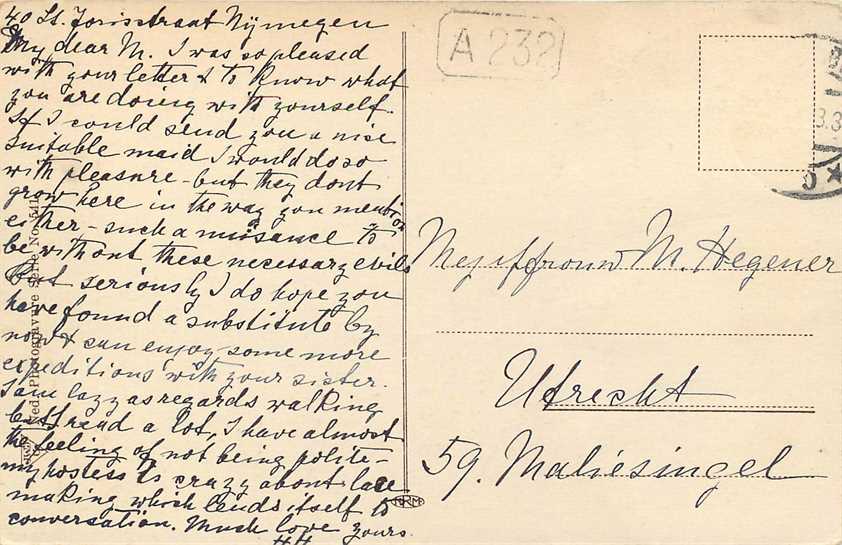 40 St. Jorisstraat Nijmegen
My dear M. I was so pleased
with your letter & to know what
you are doing with yourself.
If I could send you a nice
suitable maid I would do so
with pleasure - but they dont
grow here in the way you mention
either - such a nuisance to
be without these necessary evils
But seriously I do hope you
have found a substitute by
now & can enjoy some more
expeditions with your sister.
I am lazy as regards walking
but read a lot, I have almost
the feeling of not being polite -
my hostess is crazy about lace
making which lends itself to
conversation. Much love yours.
HH
A 232
3.3
Mejuffrouw M. Hegener
Utrecht
59. Maliesingel
Ned. Photogravure Serie No.
MRM